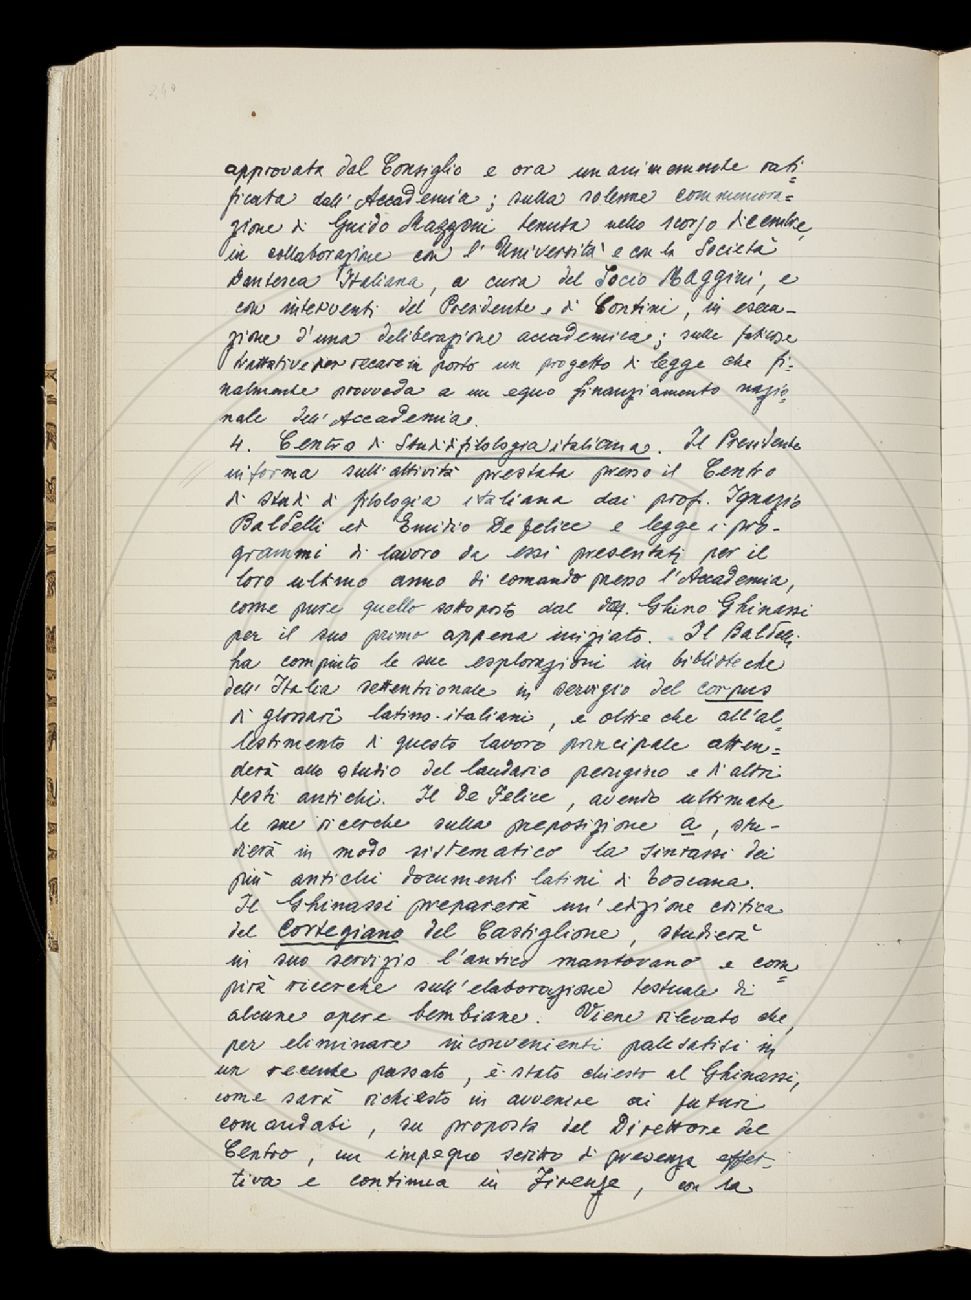 approvata dal Consiglio e ora unanimemente rati=
ficata dall'Accademia; sulla solenne commemora=
zione di Guido Mazzoni tenuta nello scorso dicembre,
in collaborazione con l'Università e con la Società
Dantesca Italiana, a cura del Socio Maggini, e
con interventi del Presidente e di Contini, in esecu-
zione d'una deliberazione accademica; sulle faticose
trattative per recare in porto un progetto di legge che fi=
nalmente provveda a un equo finanziamento nazio=
nale dell'Accademia.
4. Centro di Studi di filologia italiana. Il Presidente
informa sull'attività prestata presso il Centro
di studi di filologia italiana dai prof. Ignazio
Baldelli ed Emidio De Felice e legge i pro-
grammi di lavoro da essi presentati per il
loro ultimo anno di comando presso l'Accademia,
come pure quello sottoposto dal Ghino Ghinassi
per il suo primo appena iniziato. Il Baldelli
ha compiuto le sue esplorazioni in biblioteche
dell'Italia settentrionale in servigio del corpus
di glossari latino-italiani, e oltre che all'al=
lestimento di questo lavoro principale atten=
derà allo studio del laudario perugino e d'altri
testi antichi. Il De Felice, avendo ultimate
le sue ricerche sulla preposizione a, stu-
dierà in modo sistematico la sintassi dei
più antichi documenti latini di Toscana.
Il Ghinassi preparerà un'edizione critica
del Cortegiano del Castiglione, studierà
in suo servizio l'antico mantovano e com=
pirà ricerche sull'elaborazione testuale di
alcune opere bembiane. Viene rilevato che,
per eliminare inconvenienti palesatisi in
un recente passato, è stato chiesto al Ghinassi,
come sarà richiesto in avvenire ai futuri
comandati, su proposta del Direttore del
Centro, un impegno scritto di presenza effet-
tiva e continua in Firenze, con la